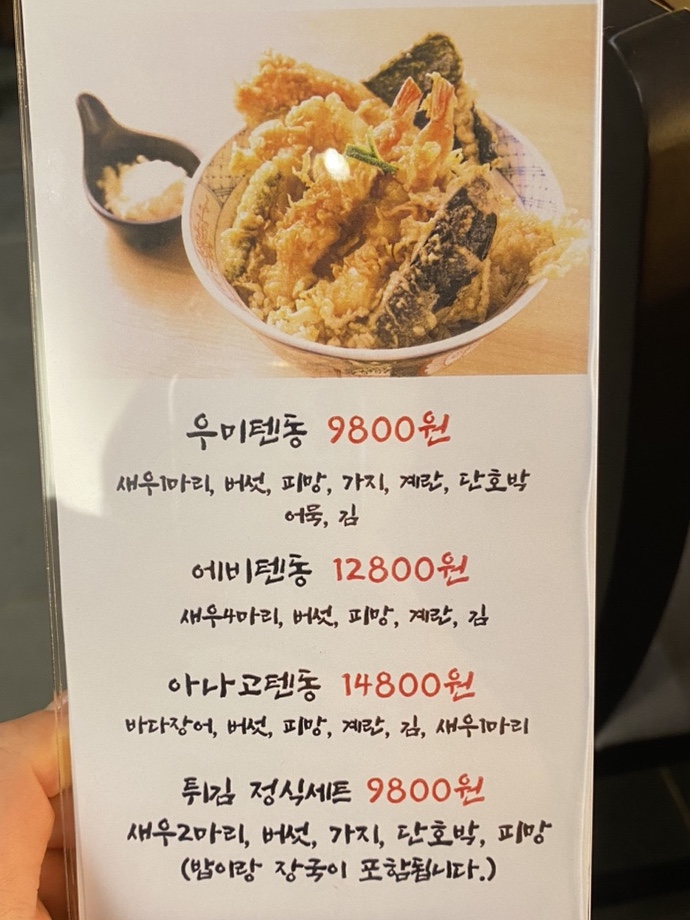 우미텐동 9800원
새우1마리, 버섯, 피망, 가지, 계란, 단호박
어묵, 김
에비텐동 12800원
새우4마리, 버섯, 피망, 계란, 김
아나고텐동 14800원
바다장어, 버섯, 피망, 계란, 김, 새우1마리
튀김 정식세트 9800원
새우2마리, 버섯, 가지, 단호박, 피망
(밥이랑 장국이 포함됩니다.)